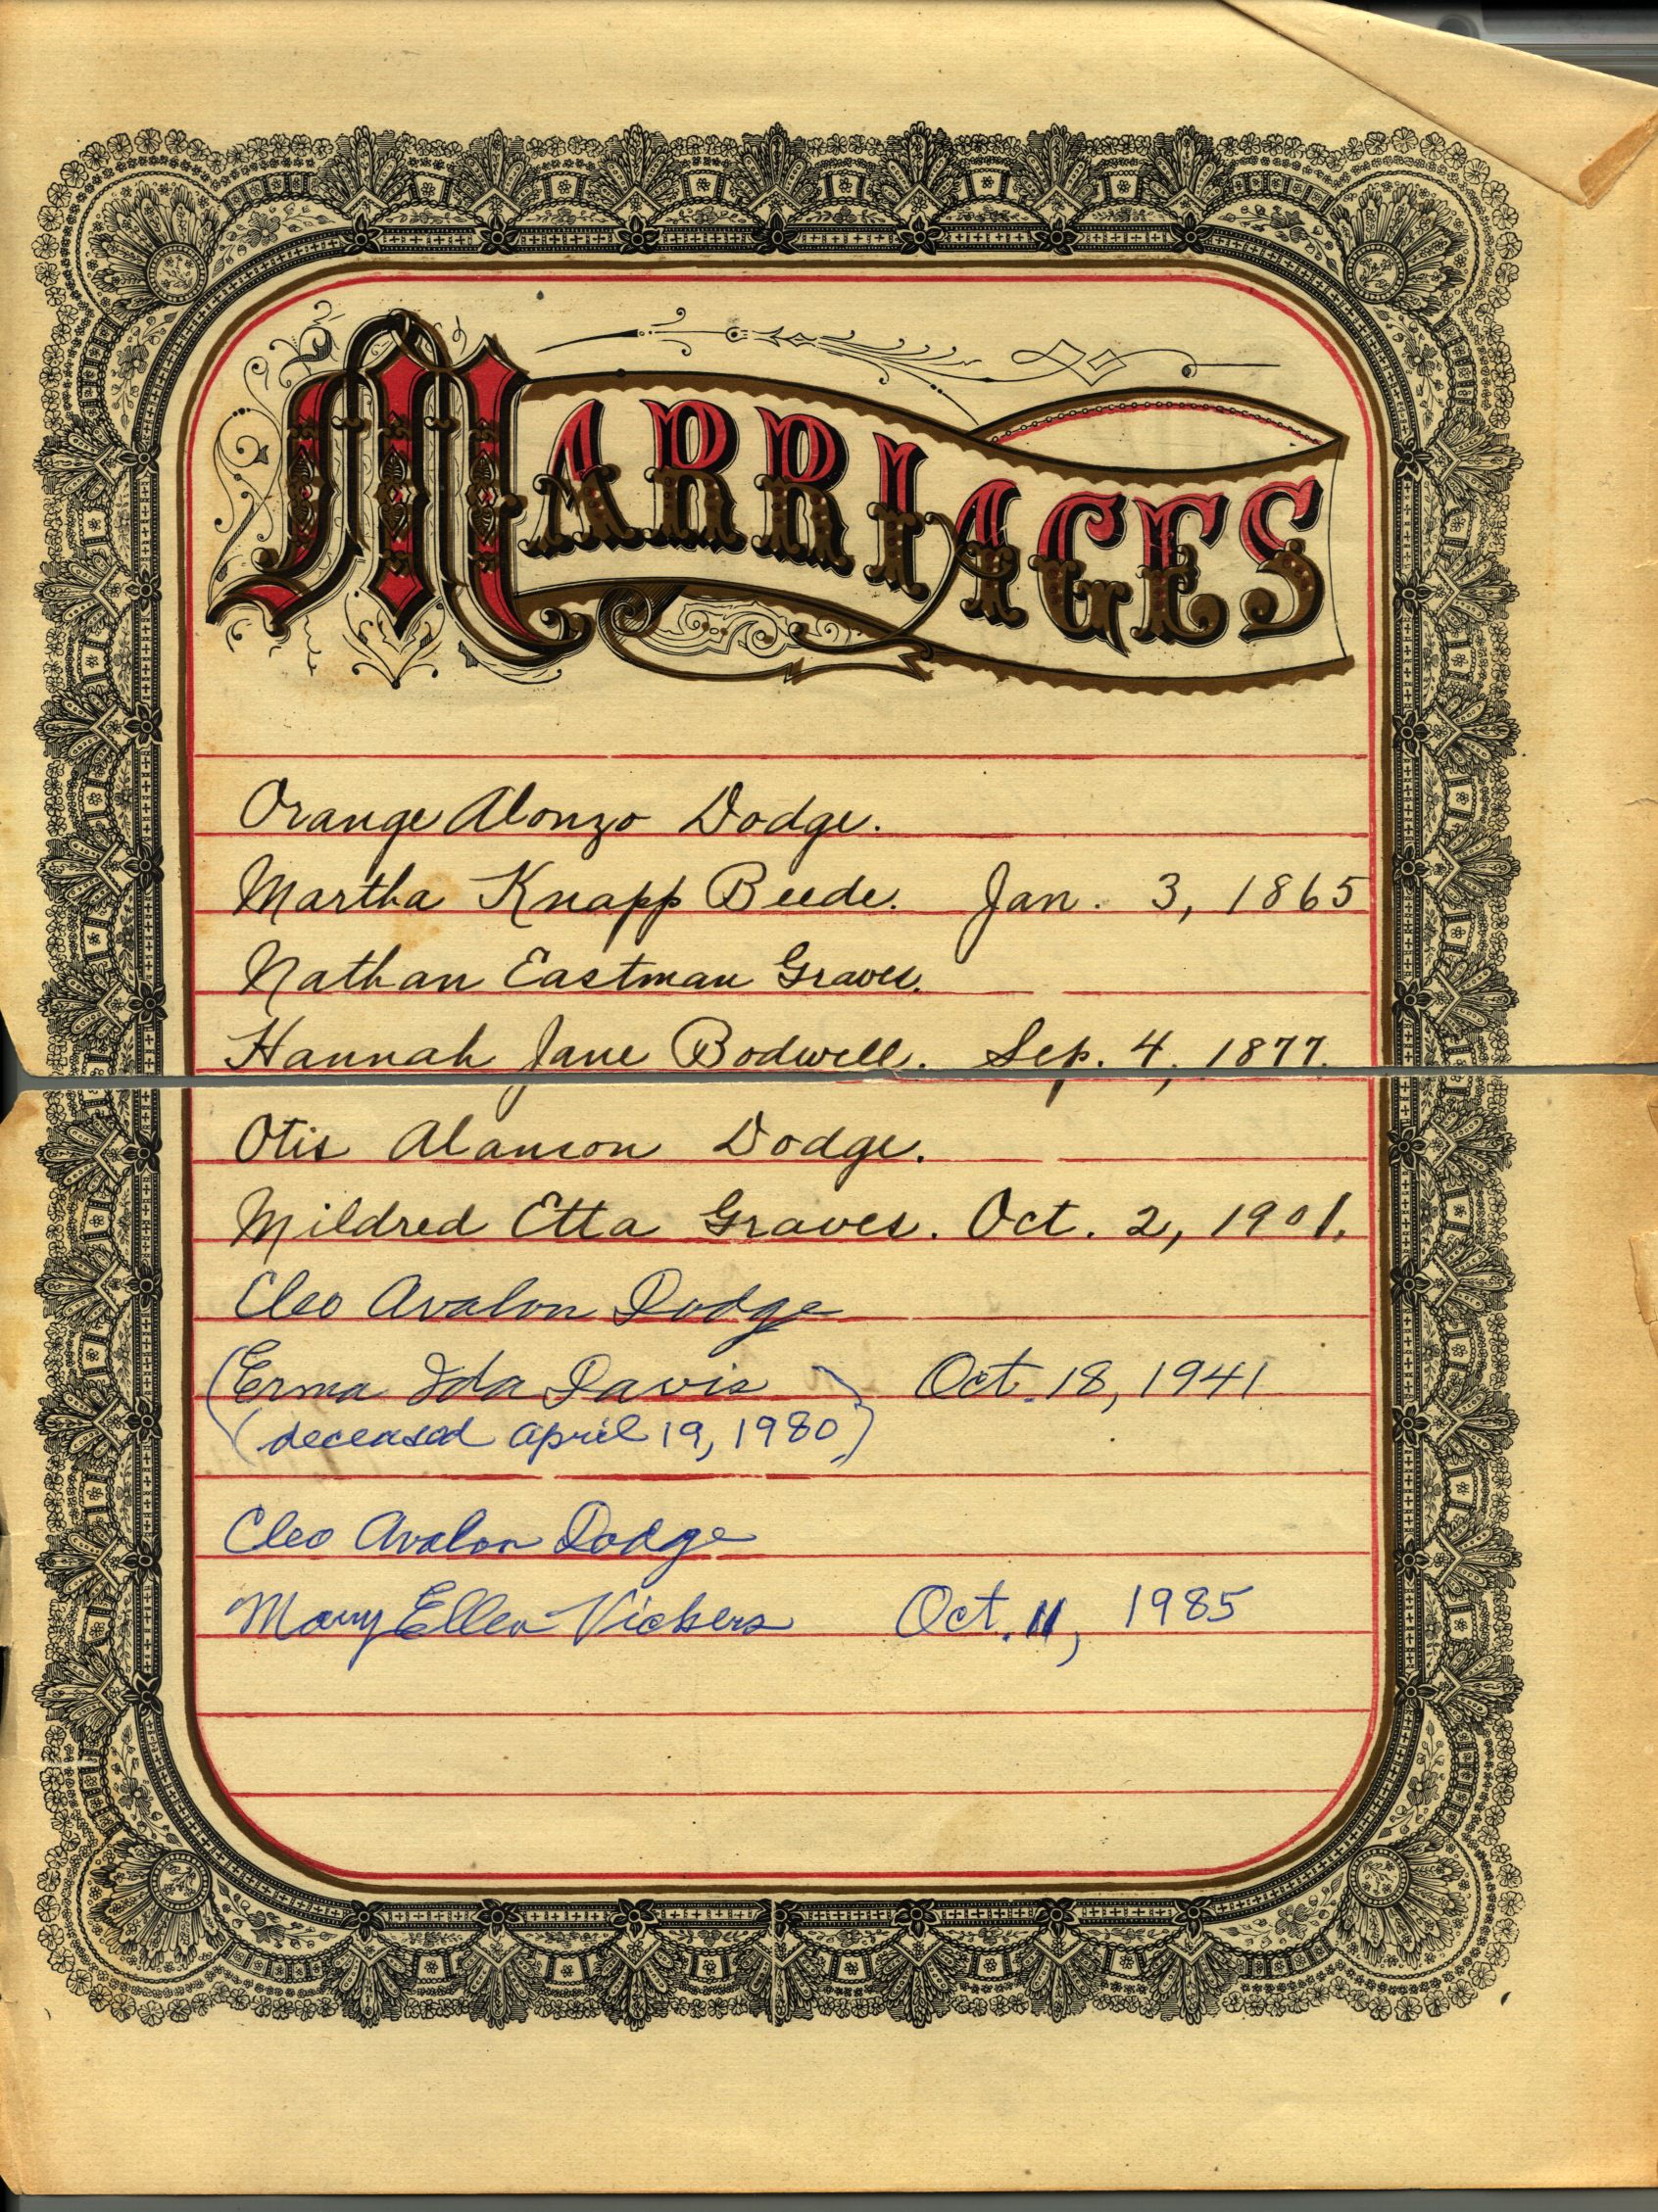 MARRIAGES
Orange Alonzo Dodge.
Martha Knapp Beede. Jan. 3, 1865
Nathan Eastman Graves.
Hannah Jane Bodwell. Sep. 4, 1877.
Otis Alanson Dodge.
Mildred Etta Graves. Oct. 2, 1901.
Cleo Avalon Dodge
(Erma Ida Davis) Oct. 18, 1941
(deceased April 19, 1980)
Cleo Avalon Dodge
Mary Ellen Vickers Oct. 11, 1985